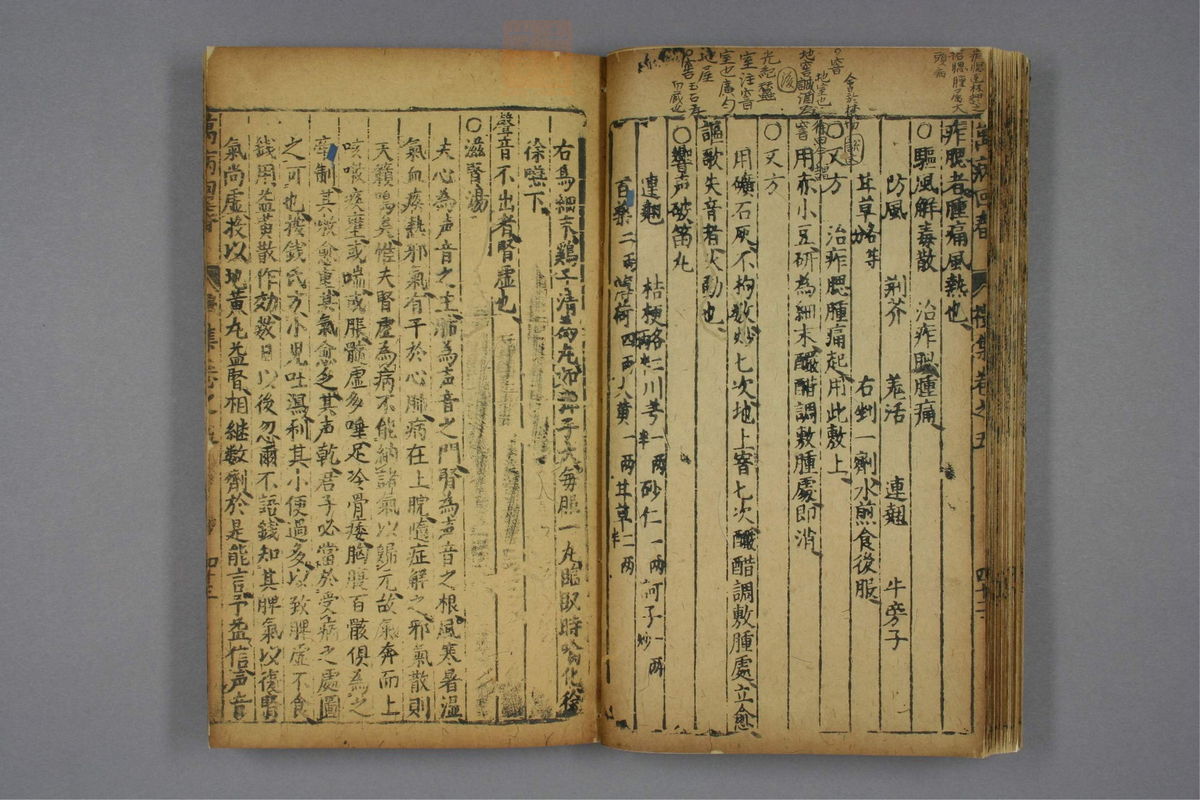 萬病回春 卷之五
痄腮者腫痛風熱也
〇驅風解毒散 治痄腮腫痛
防風 荊芥 羗活 連翹 牛旁子
甘草各等 右剉一劑水煎食後服
〇又方 治痄腮腫痛起用此敷上
用赤小豆研為細末釅醋調敷腫處即消
〇又方
用礦石灰不拘数炒七次地上窨七次釅醋調敷腫處立愈
謳歌失音者火動也
〇響声破笛丸
連翹 桔梗 川芎 砂仁一两 訶子炒一两
百藥二两 薄荷四两 大黄一两 甘草二两
右為細末鷄子清為丸弹子大每服一丸臨臥時噙化徐
徐嚥下
聲音不出者腎虛也
〇滋腎湯
夫心為声音之主肺為声音之門腎為声音之根風寒暑湿
氣血痰熱邪氣有干於心肺病在上脘隨症解之邪氣散則
天籟鳴矣惟夫腎虛為病不能納諸氣以歸元故氣奔而上
咳嗽痰壅或喘或脹髓虛多唾足冷骨痿胸腹百骸俱為之
牽制其嗽愈重其氣愈乏其声乾君子必當於受病之處圖
之可也按錢氏方小児吐瀉利其小便過多以致脾虛不食
錢用益黄散作効数日以後忽爾不語錢知其脾氣以復腎
氣尚虛投以地黄丸益腎相継数劑於是能言予益信声音
萬病回春 卷之